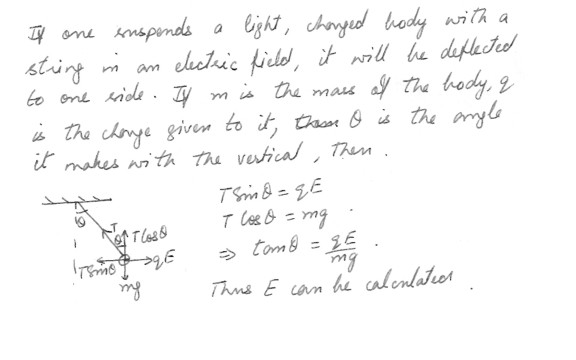 If one suspends a light, charged body with a
string in an electric field, it will be deflected
to one side. If m is the mass of the body, q
is the charge given to it, θ is the angle
it makes with the vertical, Then.
T Sin θ = qE
T Cos θ = mg.
⇒ tan θ = qE/mg.
Thus E can be calculated.
θ
T
θ T Cos θ
T Sin θ qE
mg